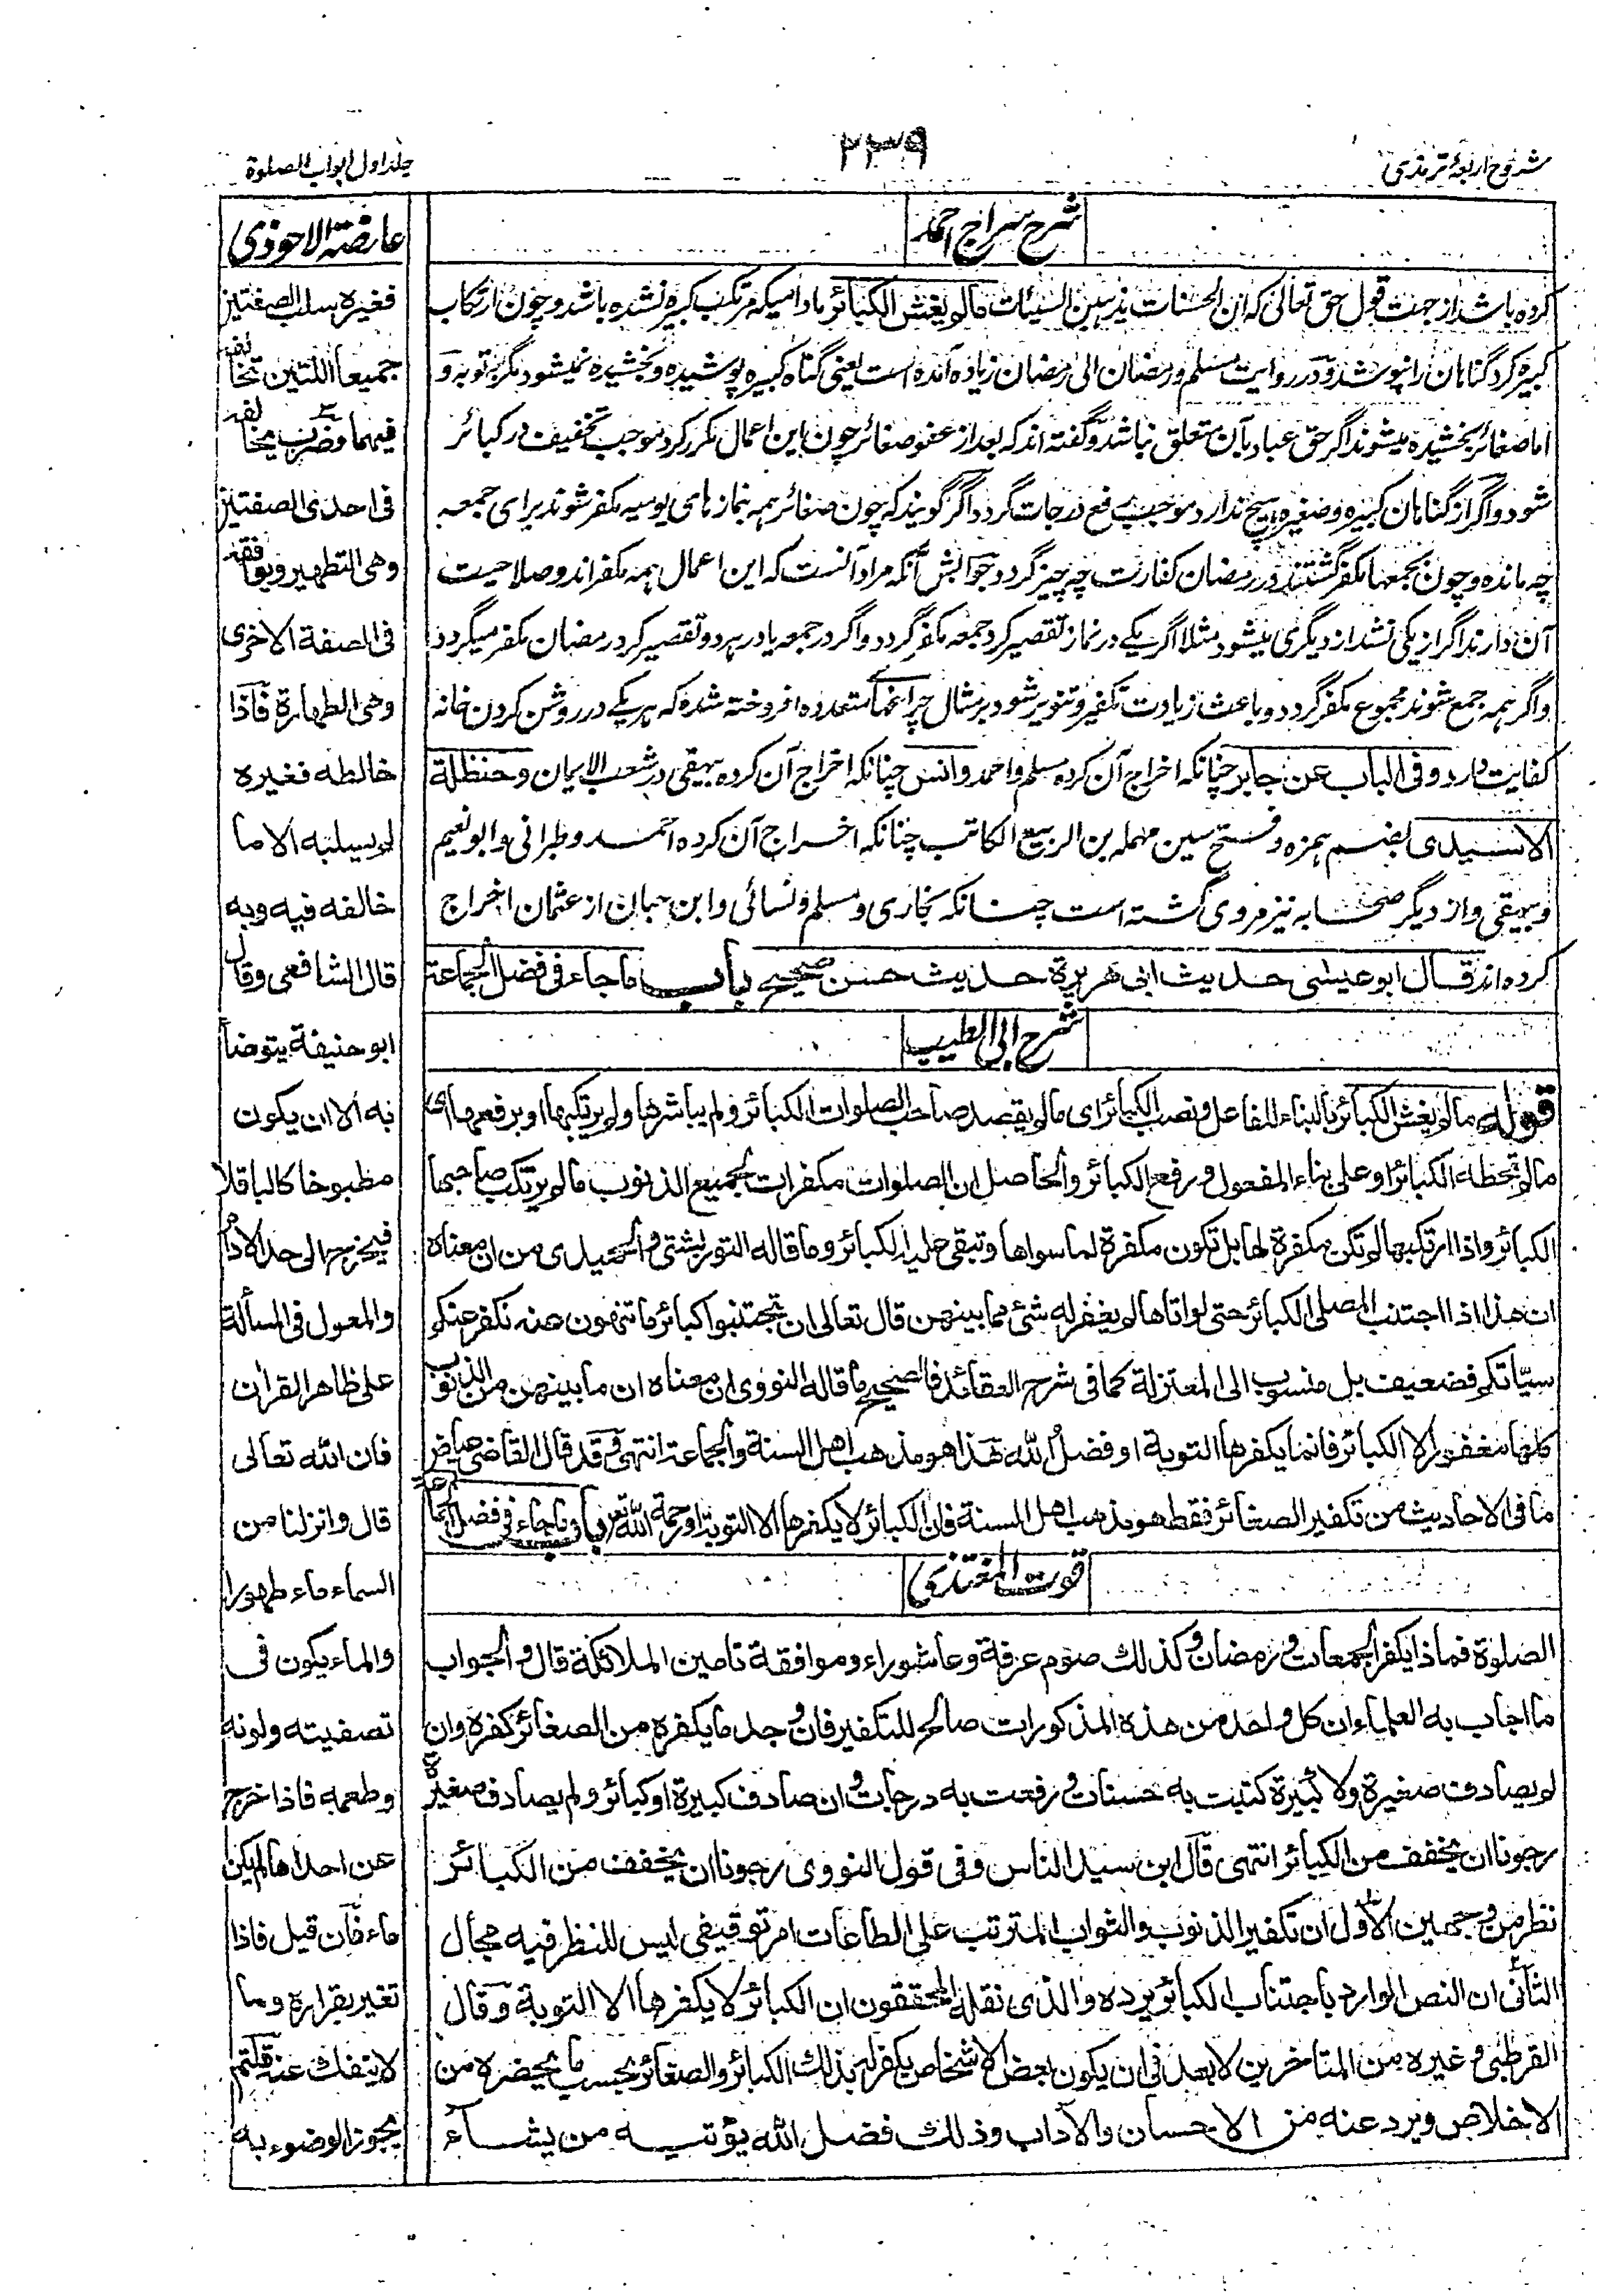 شروح اربعهٔ ترمذی
۲۳۹
جلد اول ابواب الصلوة
شرح سراج احمد
کرده باشد از جهت قول حق تعالی که ان الحسنات یذهبن السیئات مالم یغش الکبائر مادامیکه مرتکب کبیره نشده باشد و چون ارتکاب
کبیره کرد گناهان را نپوشد و در روایت مسلم و رمضان الی رمضان زیاده آمده است یعنی گناه کبیره پوشیده و بخشیده نمیشود مگر بتوبه و
اما صغائر بخشیده میشوند اگر حق عباد بآن متعلق نباشد و گفته اند که بعد از عفو صغائر چون باین اعمال مکرر کرد موجب تخفیف در کبائر
شود و اگر از گناهان کبیره و صغیره هیچ ندارد موجب رفع درجات گردد اگر گویند که چون صغائر همه بنمازهای یومیه مکفر شوند برای جمعه
چه مانده و چون بجمعها مکفر گشتند در رمضان کفارت چه چیز گردد جوابش آنکه مراد آنست که این اعمال همه مکفر اند و صلاحیت
آن دارند اگر از یکی نشد از دیگری میشود مثلا اگر یکے در نماز تقصیر کرد جمعه مکفر گردد و اگر در جمعه یا در هر دو تقصیر کرد رمضان مکفر میگردد
و اگر همه جمع شوند مجموع مکفر گردد و باعث زیادت تکفیر و تنویر شود بر مثال چراغهائے متعدده افروخته شده که هر یکے در روشن کردن خانه
کفایت دارد و فی الباب عن جابر چنانکه اخراج آن کرده مسلم و احمد و انس چنانکه اخراج آن کرده بیهقی در شعب الایمان و حنظلة
الاسیدی بضم همزه و فتح سین مهمله بن الربیع الکاتب چنانکه اخراج آن کرده احمد و طبرانی و ابو نعیم
و بیهقی و از دیگر صحابه نیز مروی گشته است چنانکه بخاری و مسلم و نسائی و ابن حبان از عثمان اخراج
کرده اند قال ابو عیسی حدیث ابی هریرة حدیث حسن صحیح باب ما جاء فی فضل الجماعة
شرح ابی الطیب
قوله مالم یغش الکبائر بالبناء للفاعل و نصب الکبائر ای مالم یقصد صاحب الصلوات الکبائر و لم یباشرها و لم یرتکبها او برفعها ای
مالم تحطه الکبائر او علی بناء المفعول و رفع الکبائر و الحاصل ان الصلوات مکفرات لجمیع الذنوب مالم یرتکب صاحبها
الکبائر و اذا ارتکبها لم تکن مکفرة لها بل تکون مکفرة لما سواها و تبقی علیه الکبائر و ما قاله التوربشتی و الحمیدی من ان معناه
ان هذا اذا اجتنب المصلی الکبائر حتی لو اتاها لم یغفر له شئ مما بینهن قال تعالی ان تجتنبوا کبائر ما تنهون عنه نکفر عنکم
سیّاتکم فضعیف بل منسوب الی المعتزلة کما فی شرح العقائد فالصحیح ما قاله النووی ان معناه ان ما بینهن من الذنوب
کلها مغفور الا الکبائر فانما یکفرها التوبة او فضل الله هذا هو مذهب اهل السنة و الجماعة انتهی و قد قال القاضی عیاض
ما فی الاحادیث من تکفیر الصغائر فقط هو مذهب اهل السنة فان الکبائر لا یکفرها الا التوبة او رحمة الله تع باب ما جاء فی فضل الجماعة
قوت المغتذی
الصلوة فماذا یکفر الجمعات و رمضان و کذلک صوم عرفة و عاشوراء و موافقة تامین الملائکة قال و الجواب
ما اجاب به العلماء ان کل واحد من هذه المذکورات صالح للتکفیر فان وجد ما یکفره من الصغائر کفره و ان
لم یصادف صغیرة ولا کبیرة کتبت به حسنات و رفعت به درجات و ان صادف کبیرة او کبائر و لم یصادف صغیرة
رجونا ان یخفف من الکبائر انتهی قال ابن سید الناس و فی قول النووی رجونا ان یخفف من الکبائر
نظر من وجهین الاول ان تکفیر الذنوب و الثواب المترتب علی الطاعات امر توقیفی لیس للنظر فیه مجال
الثانی ان النص الوارد باجتناب الکبائر یرده و الذی نقله المحققون ان الکبائر لا یکفرها الا التوبة و قال
القرطبی و غیره من المتاخرین لا بعد فی ان یکون بعض الاشخاص یکفر له بذلک الکبائر و الصغائر بحسب ما یحضره من
الاخلاص و یرد عنه من الاحسان و الآداب و ذلک فضل الله یؤتیه من یشاء
عارضة الاحوذی
فغیره سلب الصفتین
جمیعا اللتین تخالفه
فیهما و ضرب یخالفه
فی احدی الصفتین
وهی التطهیر و یوافقه
فی الصفة الاخری
وهی الطهارة فاذا
خالطه فغیره
لم یسلبه الا ما
خالفه فیه و به
قال الشافعی و قال
ابو حنیفة یتوضأ
به الا ان یکون
مطبوخا کالباقلا
فیخرج الی حد الادام
و المعول فی المسألة
علی ظاهر القران
فان الله تعالی
قال و انزلنا من
السماء ماء طهورا
و الماء یکون فی
تصفیته و لونه
و طعمه فاذا خرج
عن احداها لم یکن
ماء فان قیل فاذا
تغیر بقراره و ما
لا ینفک عنه قلتم
یجوز الوضوء به